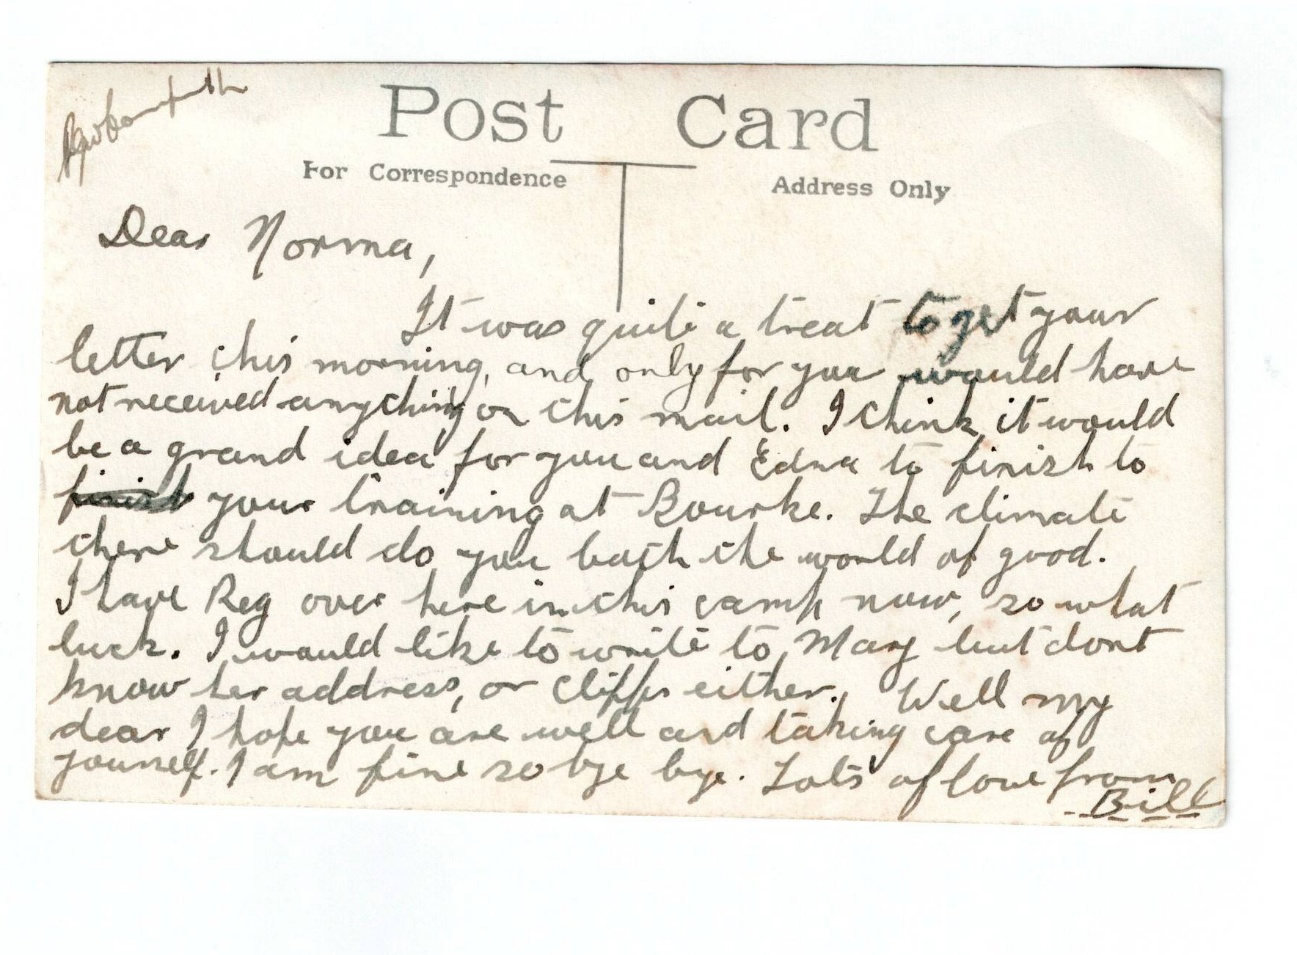 Post Card
For Correspondence
Address Only
Dear Norma,
It was quite a treat to get your
letter this morning, and only for you would have
not received anything on this mail. I think it would
be a grand idea for you and Edna to finish to
finish your training at Bourke. The climate
there should do you both the world of good.
I have Reg over here in this camp now, so what
luck. I would like to write to Mary but dont
know her address, or Cliffs either. Well my
dear I hope you are well and taking care of
yourself. I am fine so bye bye. Lots of love from
Bill